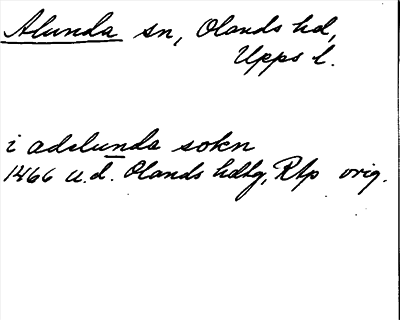 Alunda sn, Olands hd,
Upps l.
i adelunda sokn
1466 u.d. Olands hdtg, Rtp orig.